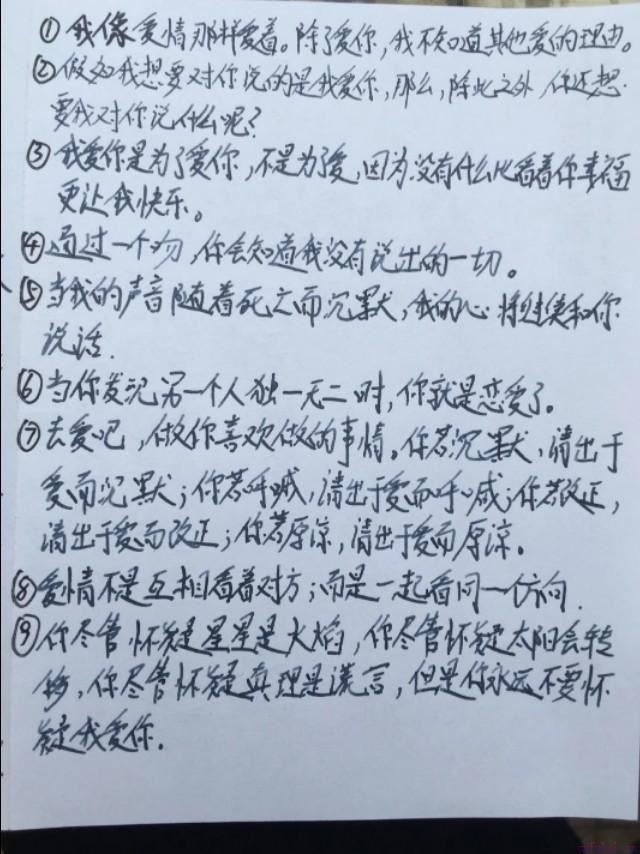 ①我像爱情那样爱着。除了爱你，我不知道其他爱的理由。
②假如我想要对你说的是我爱你，那么，除此之外 你还想
要我对你说什么呢？
③我爱你是为了爱你，不是为了爱，因为没有什么比看着你幸福
更让我快乐。
④通过一个吻，你会知道我没有说出的一切。
⑤当我的声音随着死亡而沉默，我的心将继续和你
说话.
⑥当你发现另一个人独一无二时，你就是恋爱了。
⑦去爱吧，做你喜欢做的事情。你若沉默，请出于
爱而沉默；你若呼喊，请出于爱而呼喊；你若改正，
请出于爱而改正；你若原谅，请出于爱而原谅。
⑧爱情不是互相看着对方；而是一起看同一方向.
⑨你尽管怀疑星星是火焰，你尽管怀疑太阳会转
移，你尽管怀疑真理是谎言，但是你永远不要怀
疑我爱你.